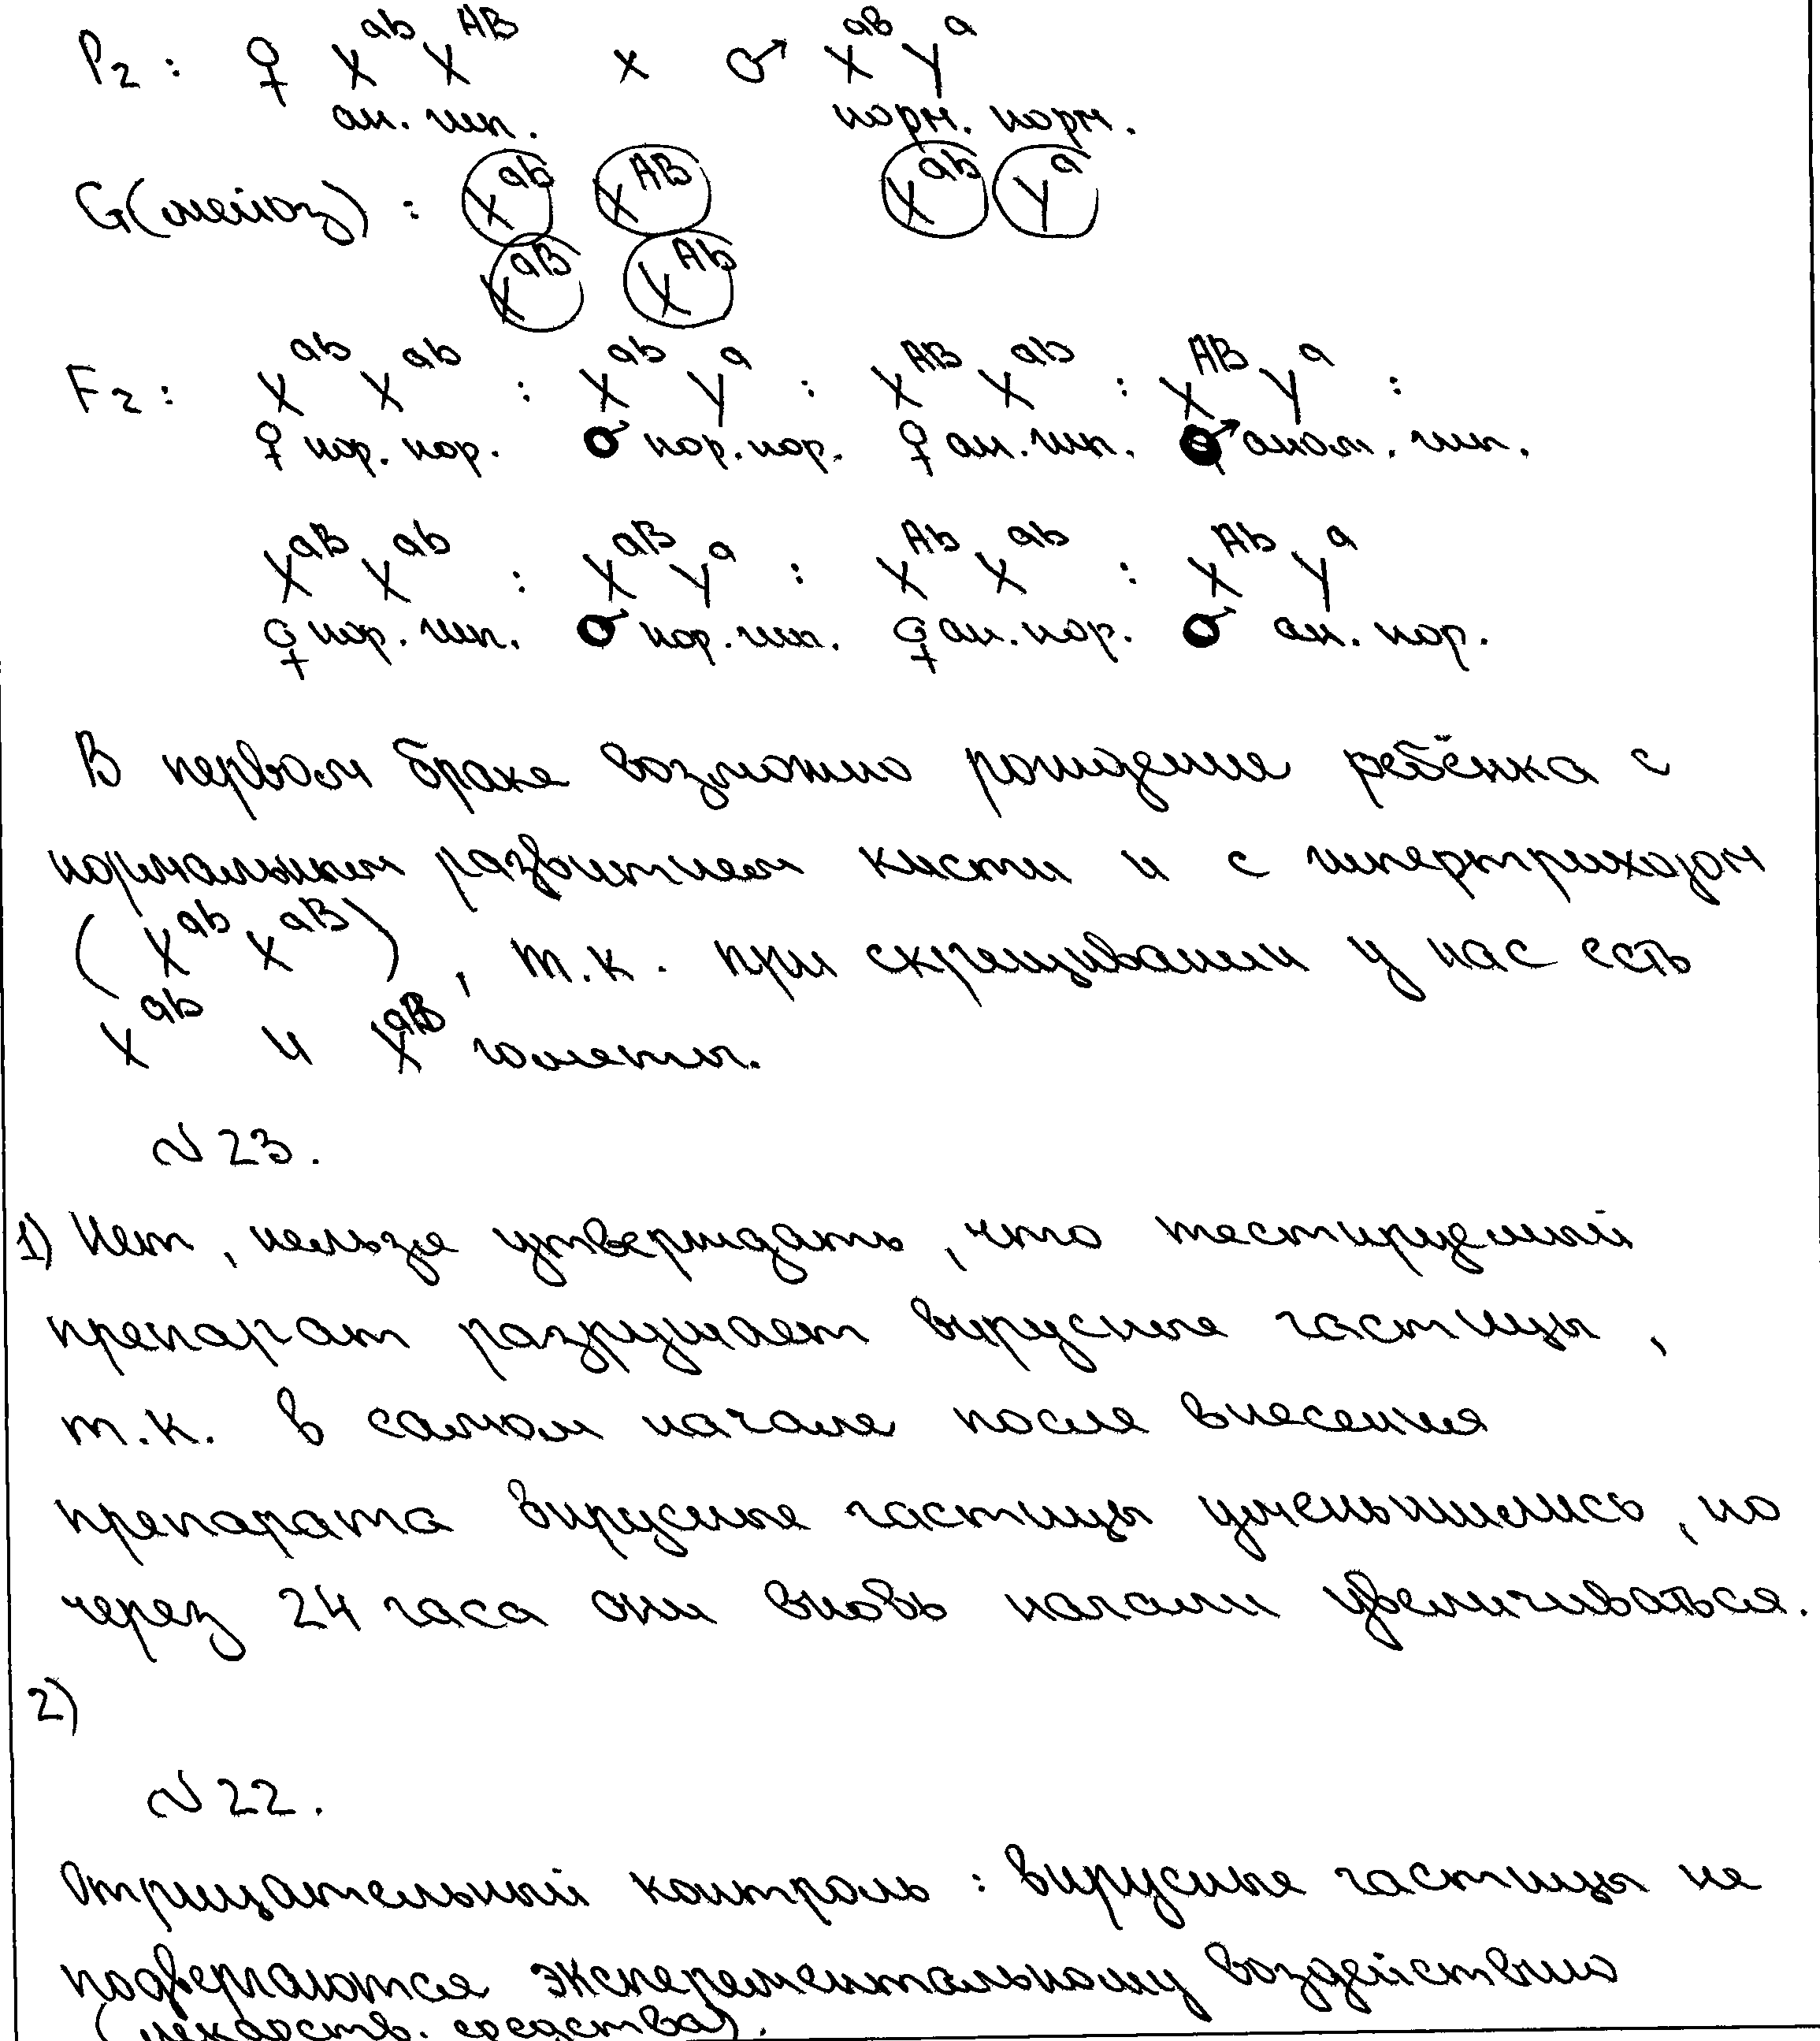 P₂ : ♀ XᵃᵇXᴬᴮ x ♂ XᵃᴮYᵃ
ан. гип. норм. норм.
G(мейоз) : Xᵃᵇ Xᴬᴮ Xᵃᵇ Yᵃ
Xᵃᴮ Xᴬᵇ
F₂ : XᵃᵇXᵃᵇ : XᵃᵇYᵃ : XᴬᴮXᵃᵇ : XᴬᴮYᵃ :
♀ нор. нор. ♂ нор. нор. ♀ ан. гип. ♂ аном. гип.
XᵃᴮXᵃᵇ : XᵃᴮYᵃ : XᴬᵇXᵃᵇ : XᴬᵇYᵃ
♀ нор. гип. ♂ нор. гип. ♀ ан. нор. ♂ ан. нор.
В первом браке возможно рождение ребёнка с
нормальным развитием кисти и с гипертрихозом
(XᵃᵇXᵃᴮ), т.к. при скрещивании у нас есть
Xᵃᵇ и Xᵃᴮ гаметы.
№23.
1) Нет, нельзя утверждать, что тестируемый
препарат разрушает вирусные частицы,
т.к. в самом начале после внесения
препарата вирусные частицы уменьшились, но
через 24 часа они вновь начали увеличиваться.
2)
№22.
Отрицательный контроль : вирусные частицы не
подвергаются эксперементальному воздействию
(лекарств. средства).